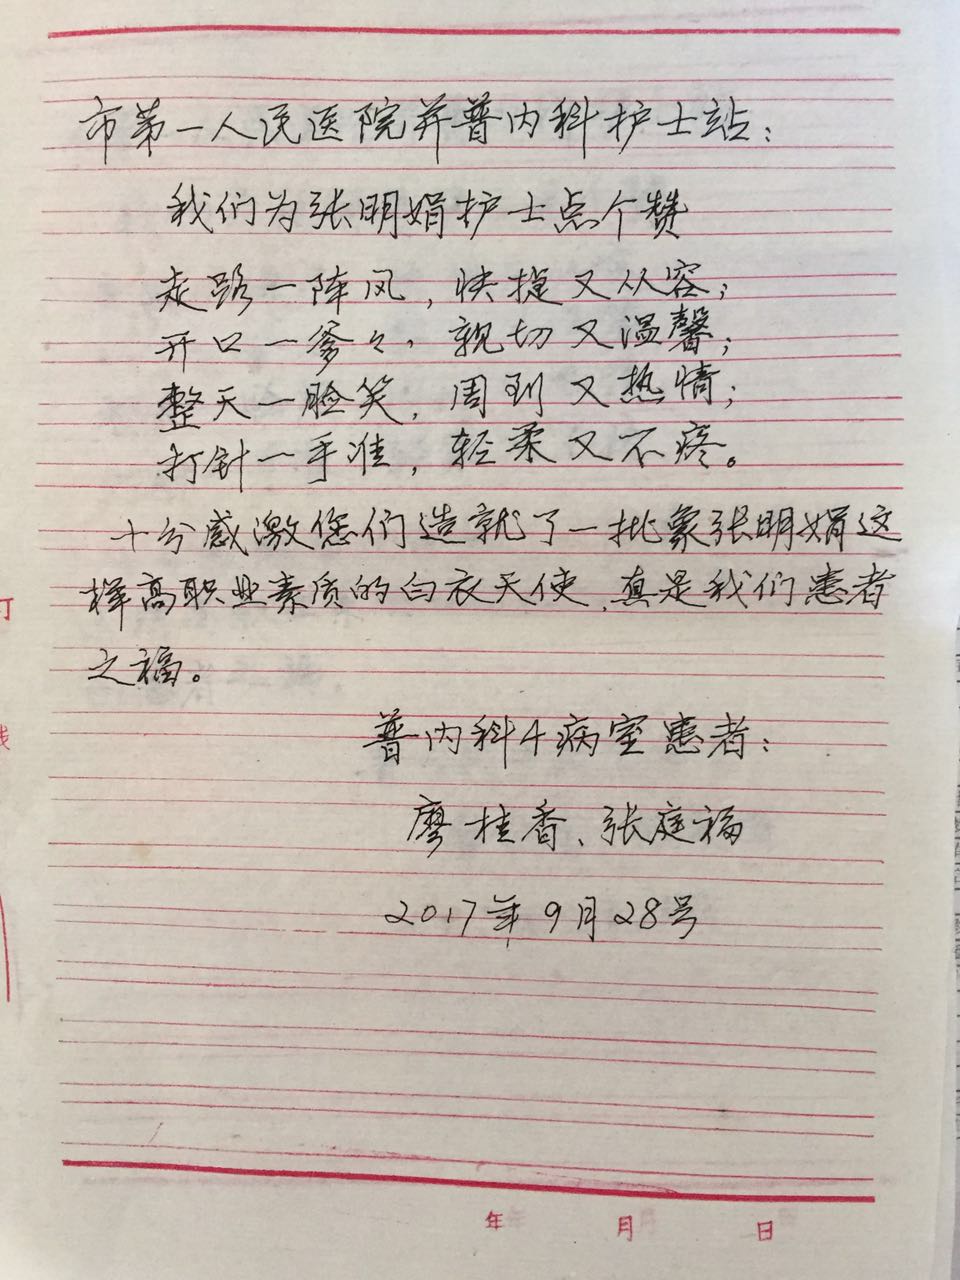 市第一人民医院并普内科护士站：
我们为张明娟护士点个赞
走路一阵风，快捷又从容；
开口一爹々，亲切又温馨；
整天一脸笑，周到又热情；
打针一手准，轻柔又不疼。
十分感激您们造就了一批象张明娟这
样高职业素质的白衣天使，真是我们患者
之福。
普内科4病室患者：
廖桂香、张庭福
2017年9月28号
年 月 日